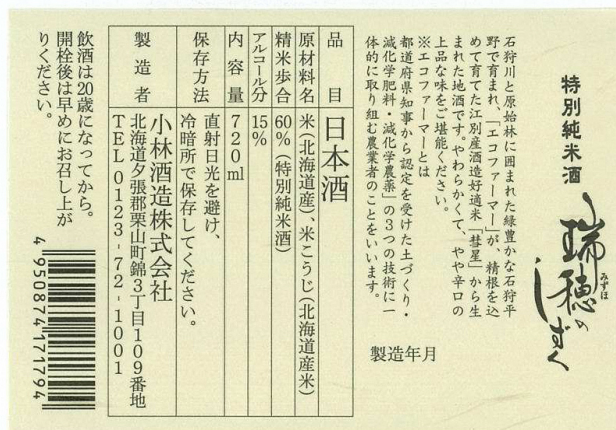 特別純米酒
瑞穂のしずく
みずほ
石狩川と原始林に囲まれた緑豊かな石狩平
野で育まれ、「エコファーマー」が、精根を込
めて育てた江別産酒造好適米「彗星」から生
まれた地酒です。やわらかくて、やや辛口の
上品な味をご堪能ください。
※エコファーマーとは
都道府県知事から認定を受けた土づくり・
減化学肥料・減化学農薬」の3つの技術に一
体的に取り組む農業者のことをいいます。
製造年月
品目 日本酒
原材料名 米(北海道産)、米こうじ(北海道産米)
精米歩合 60%(特別純米酒)
アルコール分 15%
内容量 720ml
保存方法 直射日光を避け、
冷暗所で保存してください。
製造者 小林酒造株式会社
北海道夕張郡栗山町錦3丁目109番地
TEL0123-72-1001
飲酒は20歳になってから。
開栓後は早めにお召し上が
りください。
4950874171794